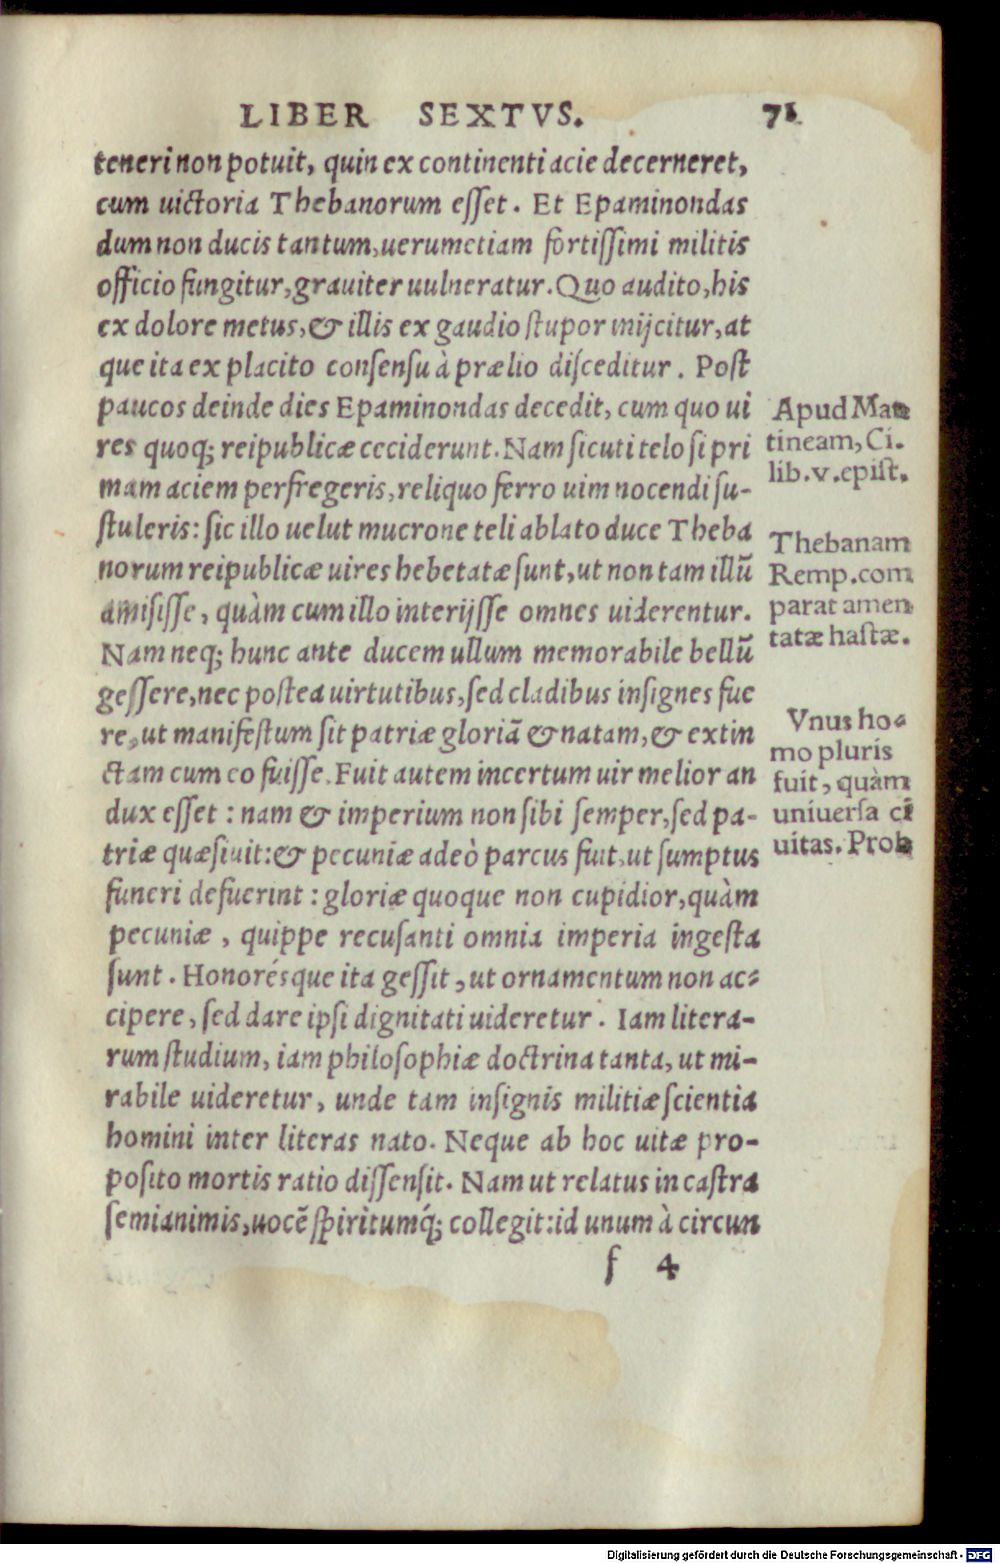 LIBER SEXTVS. 71
teneri non potuit, quin ex continenti acie decerneret,
cum uictoria Thebanorum esſet. Et Epaminondas
dum non ducis tantum, uerumetiam fortiſſimi militis
officio fungitur, grauiter uulneratur. Quo audito, his
ex dolore metus, & illis ex gaudio ſtupor inijcitur, at
que ita ex placito conſenſu à prælio diſceditur. Poſt
paucos deinde dies Epaminondas decedit, cum quo ui
res quoq; reipublicæ ceciderunt. Nam ſicuti telo ſi pri
mam aciem perfregeris, reliquo ferro uim nocendi ſu-
ſtuleris: ſic illo uelut mucrone teli ablato duce Theba
norum reipublicæ uires hebetatæ ſunt, ut non tam illũ
amiſiſſe, quàm cum illo interijſſe omnes uiderentur.
Nam neq; hunc ante ducem ullum memorabile bellũ
geſſere, nec postea uirtutibus, ſed cladibus inſignes fue
re, ut manifeſtum ſit patriæ gloriã & natam, & extin
ctam cum eo fuiſſe. Fuit autem incertum uir melior an
dux eſſet: nam & imperium non ſibi ſemper, ſed pa-
triæ quæſiuit: & pecuniæ adeò parcus fuit, ut ſumptus
funeri defuerint: gloriæ quoque non cupidior, quàm
pecuniæ, quippe recuſanti omnia imperia ingeſta
ſunt. Honorésque ita geſſit, ut ornamentum non ac-
cipere, ſed dare ipſi dignitati uideretur. Iam litera-
rum ſtudium, iam philoſophiæ doctrina tanta, ut mi-
rabile uideretur, unde tam inſignis militiæ ſcientia
homini inter literas nato. Neque ab hoc uitæ pro-
poſito mortis ratio diſſenſit. Nam ut relatus in caſtra
ſemianimis, uocẽ ſpiritumq́; collegit: id unum à circun
f 4
Apud Man
tineam, Ci.
lib. v. epiſt.
Thebanam
Remp. com
parat amen
tatæ haſtæ.
Vnus ho-
mo pluris
fuit, quàm
uniuerſa ci
uitas. Prob
Digitalisierung gefördert durch die Deutsche Forschungsgemeinschaft - DFG